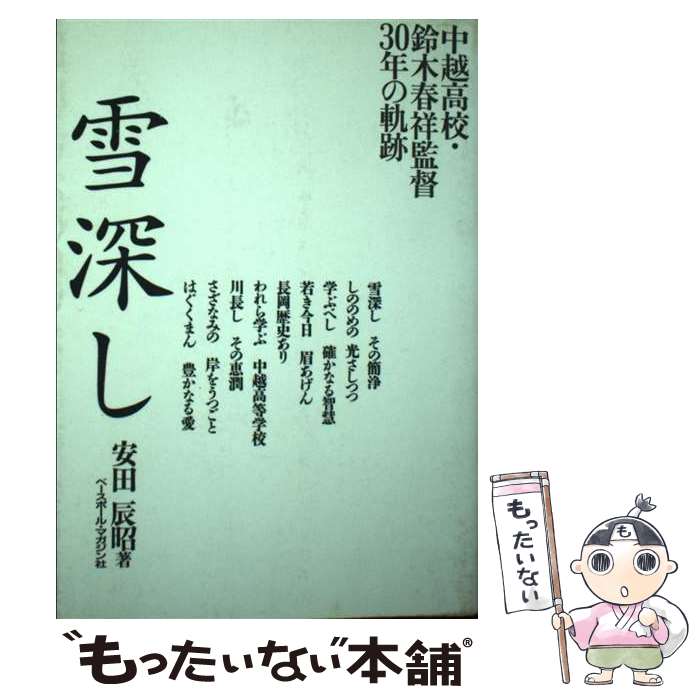 中越高校・
鈴木春祥監督
30年の軌跡
雪深し
雪深し その簡浄
しののめの 光さしつつ
学ぶべし 確かなる智慧
若き今日 眉あげん
長岡歴史あり
われら学ぶ 中越高等学校
川長し その恵潤
さざなみの 岸をうつごと
はぐくまん 豊かなる愛
安田辰昭著
ベースボール・マガジン社
もったいない
も
"もったいない"本舗®